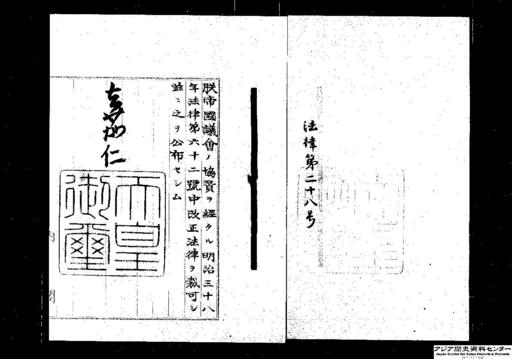 法律第二十八号
朕帝國議會ノ協賛ヲ經タル明治三十八
年法律第六十二號中改正法律ヲ裁可シ
茲ニ之ヲ公布セシム
嘉仁
天皇
御璽
アジア歴史資料センター
Japan Center for Asian Historical Records